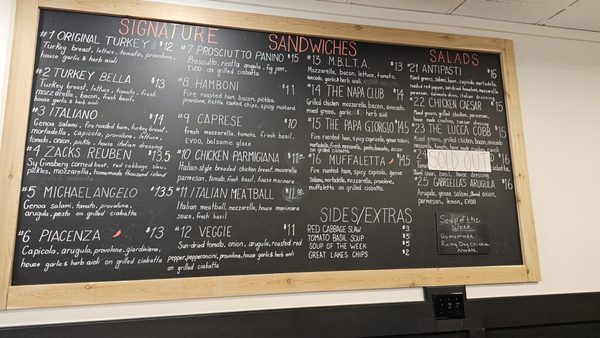 SIGNATURE SANDWICHES
#1 ORIGINAL TURKEY $12
Turkey breast, lettuce, tomato, provolone,
house garlic & herb aioli
#2 TURKEY BELLA $13
Turkey breast, lettuce, tomato, fresh
mozzarella, bacon, fresh basil,
house garlic & herb aioli
#3 ITALIANO $14
Genoa salami, fire roasted ham, turkey breast,
mortadella, capicola, provolone, lettuce,
tomato, onion, pickle, house italian dressing
#4 ZACKS REUBEN $13.5
Sy Ginsberg corned beef, red cabbage slaw,
pickles, mozzarella, homemade thousand island
#5 MICHAELANGELO $13.5
Genoa salami, tomato, provolone,
arugula, pesto on grilled ciabatta
#6 PIACENZA $13
Capicola, arugula, provolone, giardiniera,
house garlic & herb aioli on grilled ciabatta
#7 PROSCIUTTO PANINO $15
Prosciutto, ricotta, arugula, fig jam,
EVOO on grilled ciabatta
#8 HAMBONI $11
Fire roasted ham, bacon, pickles,
provolone, kettle cooked chips, spicy mustard
#9 CAPRESE $10
fresh mozzarella, tomato, fresh basil,
EVOO, balsamic glaze
#10 CHICKEN PARMIGIANA $11
Italian-style breaded chicken breast, mozzarella,
parmesan, tomato, fresh basil, house marinara
#11 ITALIAN MEATBALL $11
Italian meatball, mozzarella, house marinara
sauce, fresh basil
#12 VEGGIE $11
Sun-dried tomato, onion, arugula, roasted red
pepper, pepperoncini, provolone, house garlic & herb aioli on grilled ciabatta
#13 M.B.L.T.A. $13
Mozzarella, bacon, lettuce, tomato,
avocado, garlic & herb aioli on grilled ciabatta
#14 THE NAPA CLUB $14
Grilled chicken, mozzarella, bacon, avocado,
mixed greens, garlic & herb aioli
#15 THE PAPA GIORGIO $14.5
Fire roasted ham, spicy capicola, genoa
salami, mortadella, fresh mozzarella,
on grilled ciabatta
#16 MUFFALETTA $14.5
Fire roasted ham, spicy capicola, genoa
Salami, mortadella, mozzarella, provolone,
muffaletta on grilled ciabatta
SIDES/EXTRAS
RED CABBAGE SLAW $3
TOMATO BASIL SOUP $5
SOUP OF THE WEEK $5
GREAT LAKES CHIPS $2
SALADS
#21 ANTIPASTI $16
#22 CHICKEN CAESAR $15
Mixed greens, grilled chicken, parmesan,
house made croutons, caesar dressing
#23 THE LUCCA COBB $15
Mixed greens, grilled chicken, bacon, avocado,
SOLD OUT $16
onion, basil, house dressing
25 GABRIELLAS ARUGULA $16
Arugula, genoa salami, onion,
parmesan, lemon, EVOO
Soup of the
Week
Homemade
Rainy Day Chicken
Noodle